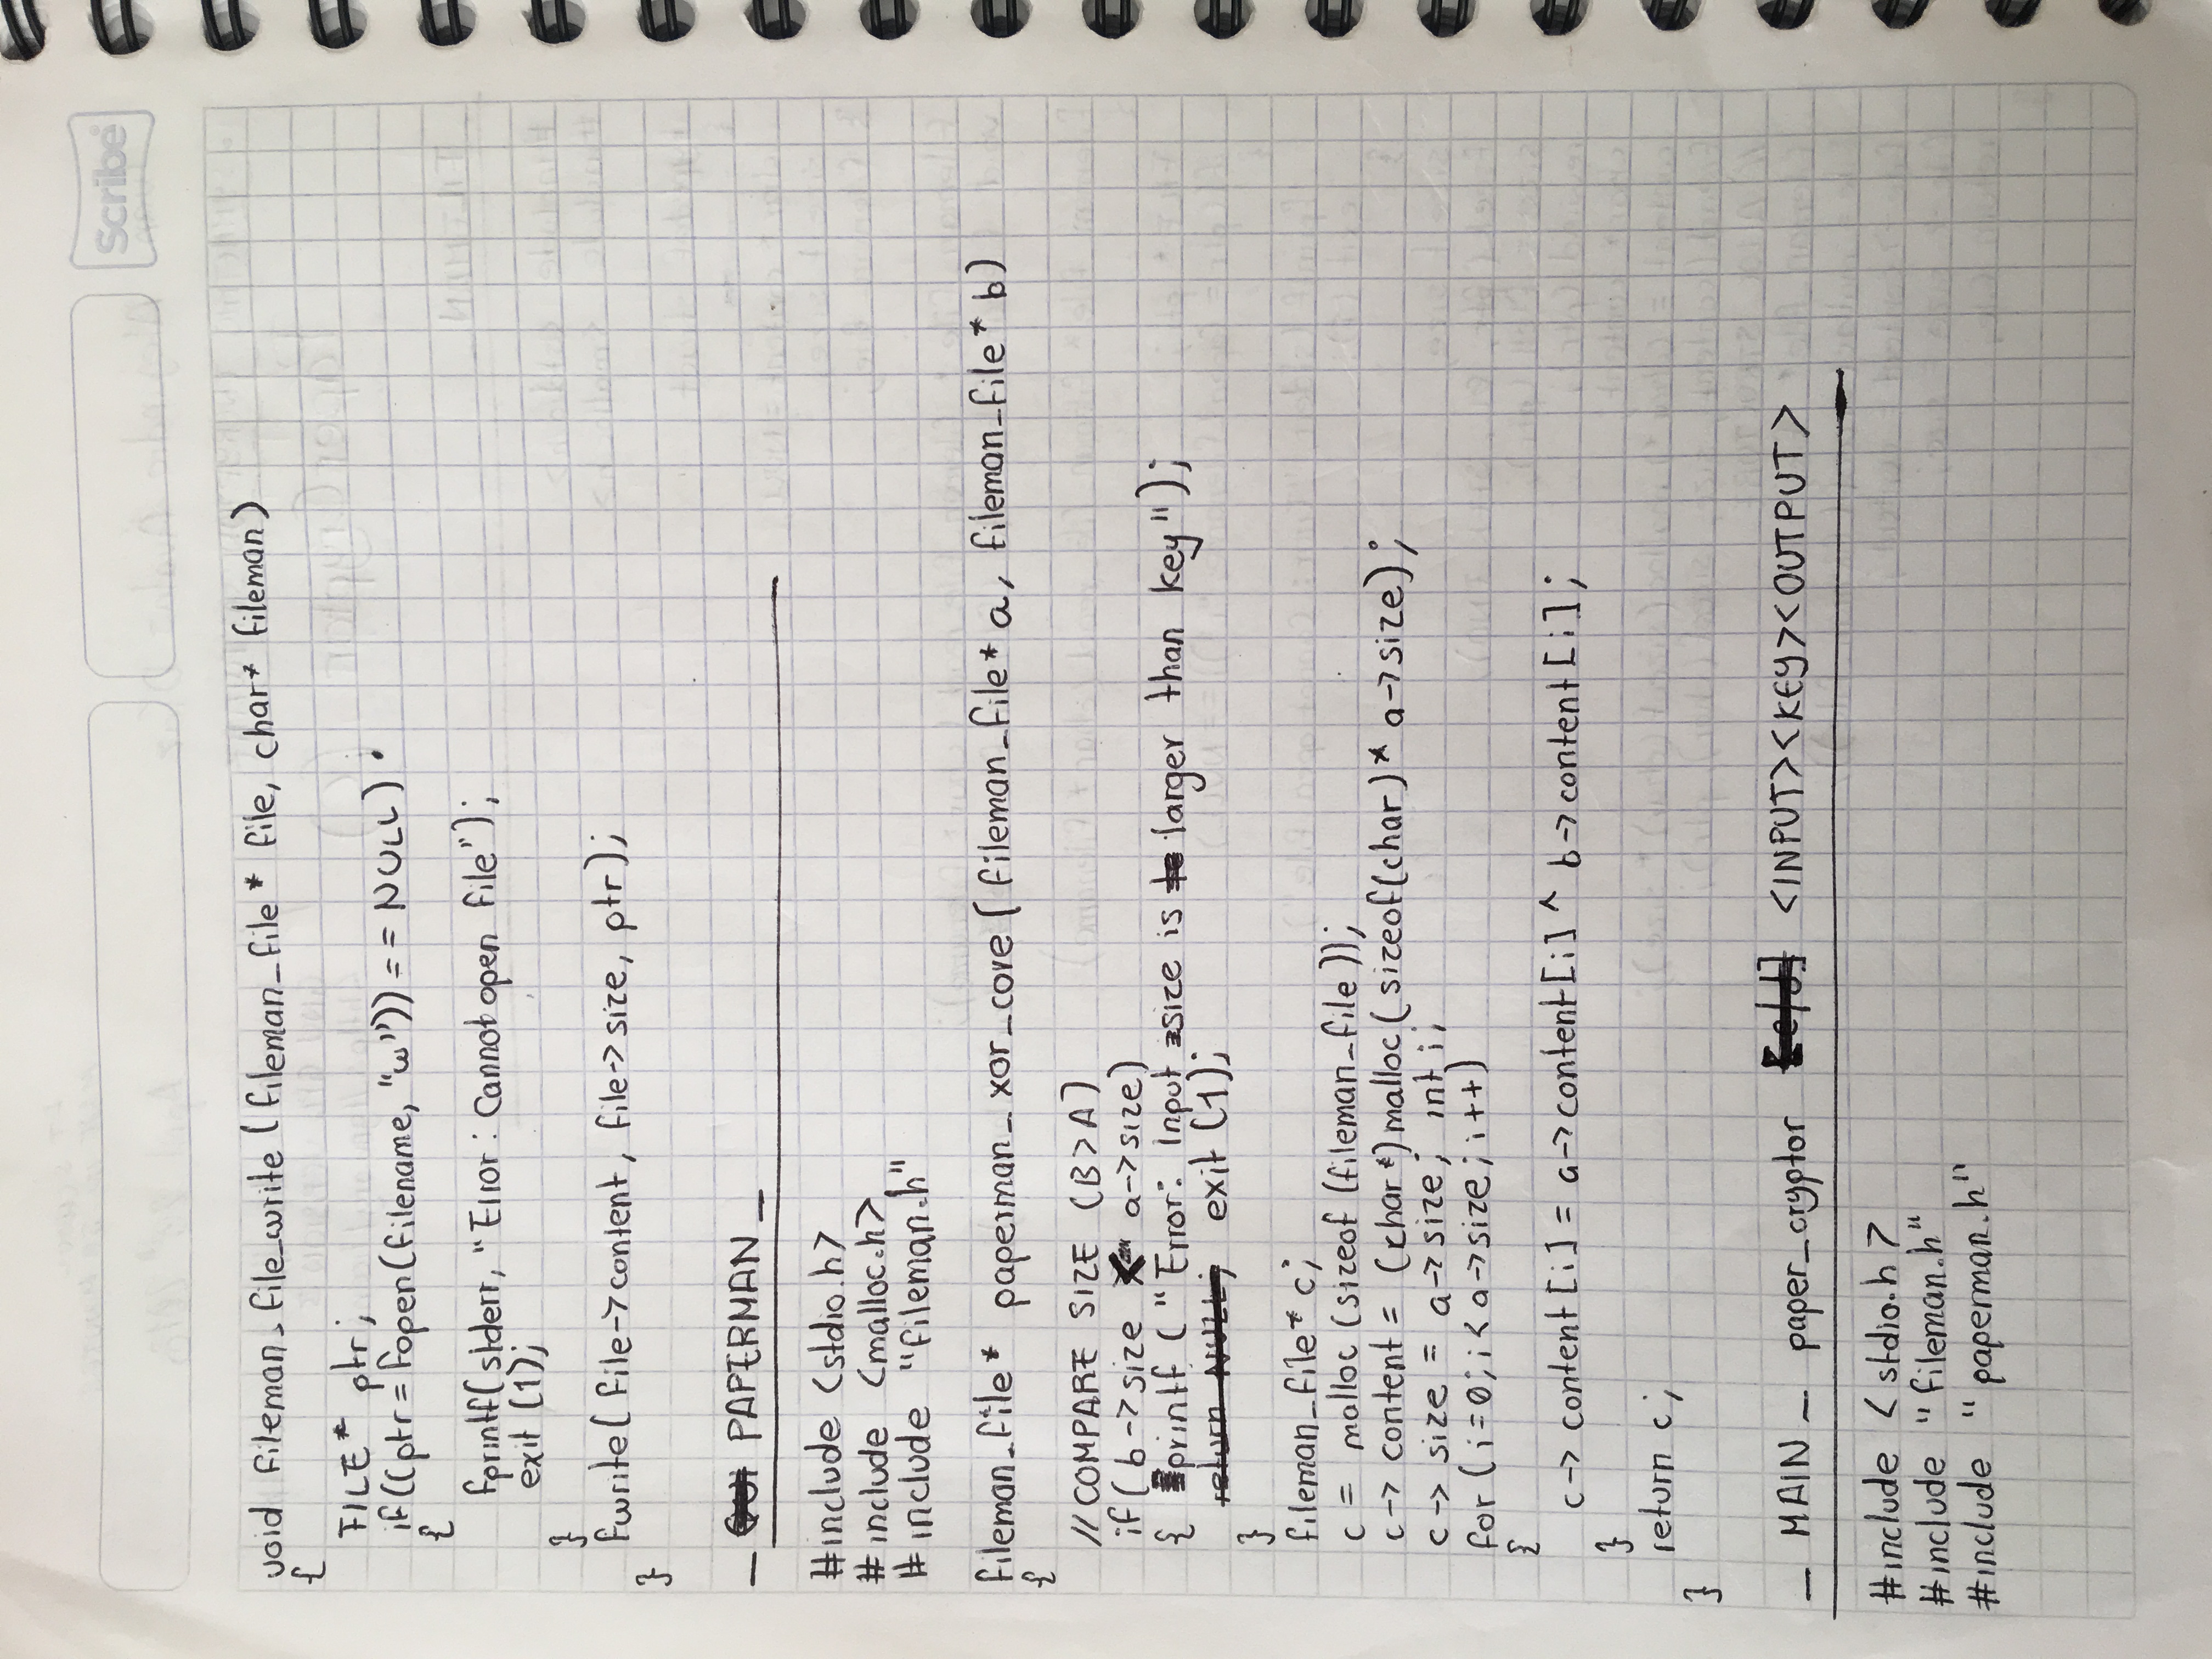 Scribe
void fileman_file_write (fileman_file* file, char* fileman)
{
FILE* ptr;
if((ptr = fopen(filename, "w")) == NULL)
{
fprintf(stderr, "Error: Cannot open file");
exit (1);
}
fwrite( file->content, file->size, ptr);
}
_ PAPERMAN _
#include <stdio.h>
#include <malloc.h>
#include "fileman.h"
fileman_file* paperman_xor_core ( fileman_file* a, fileman_file* b)
{
// COMPARE SIZE (B>A)
if( b->size < a->size)
{ printf ( "Error: Input size is larger than key");
return NULL; exit (1);
}
fileman_file* c;
c = malloc (sizeof (fileman_file));
c-> content = (char*) malloc( sizeof(char)* a->size);
c-> size = a->size; int i;
for ( i=0; i< a->size; i++)
{
c-> content [i] = a->content[i] ^ b->content [i];
}
return c;
}
_ MAIN _ paper_cryptor [e/d] <INPUT><KEY><OUTPUT>
#include < stdio.h >
#include "fileman.h"
#include "paperman.h"